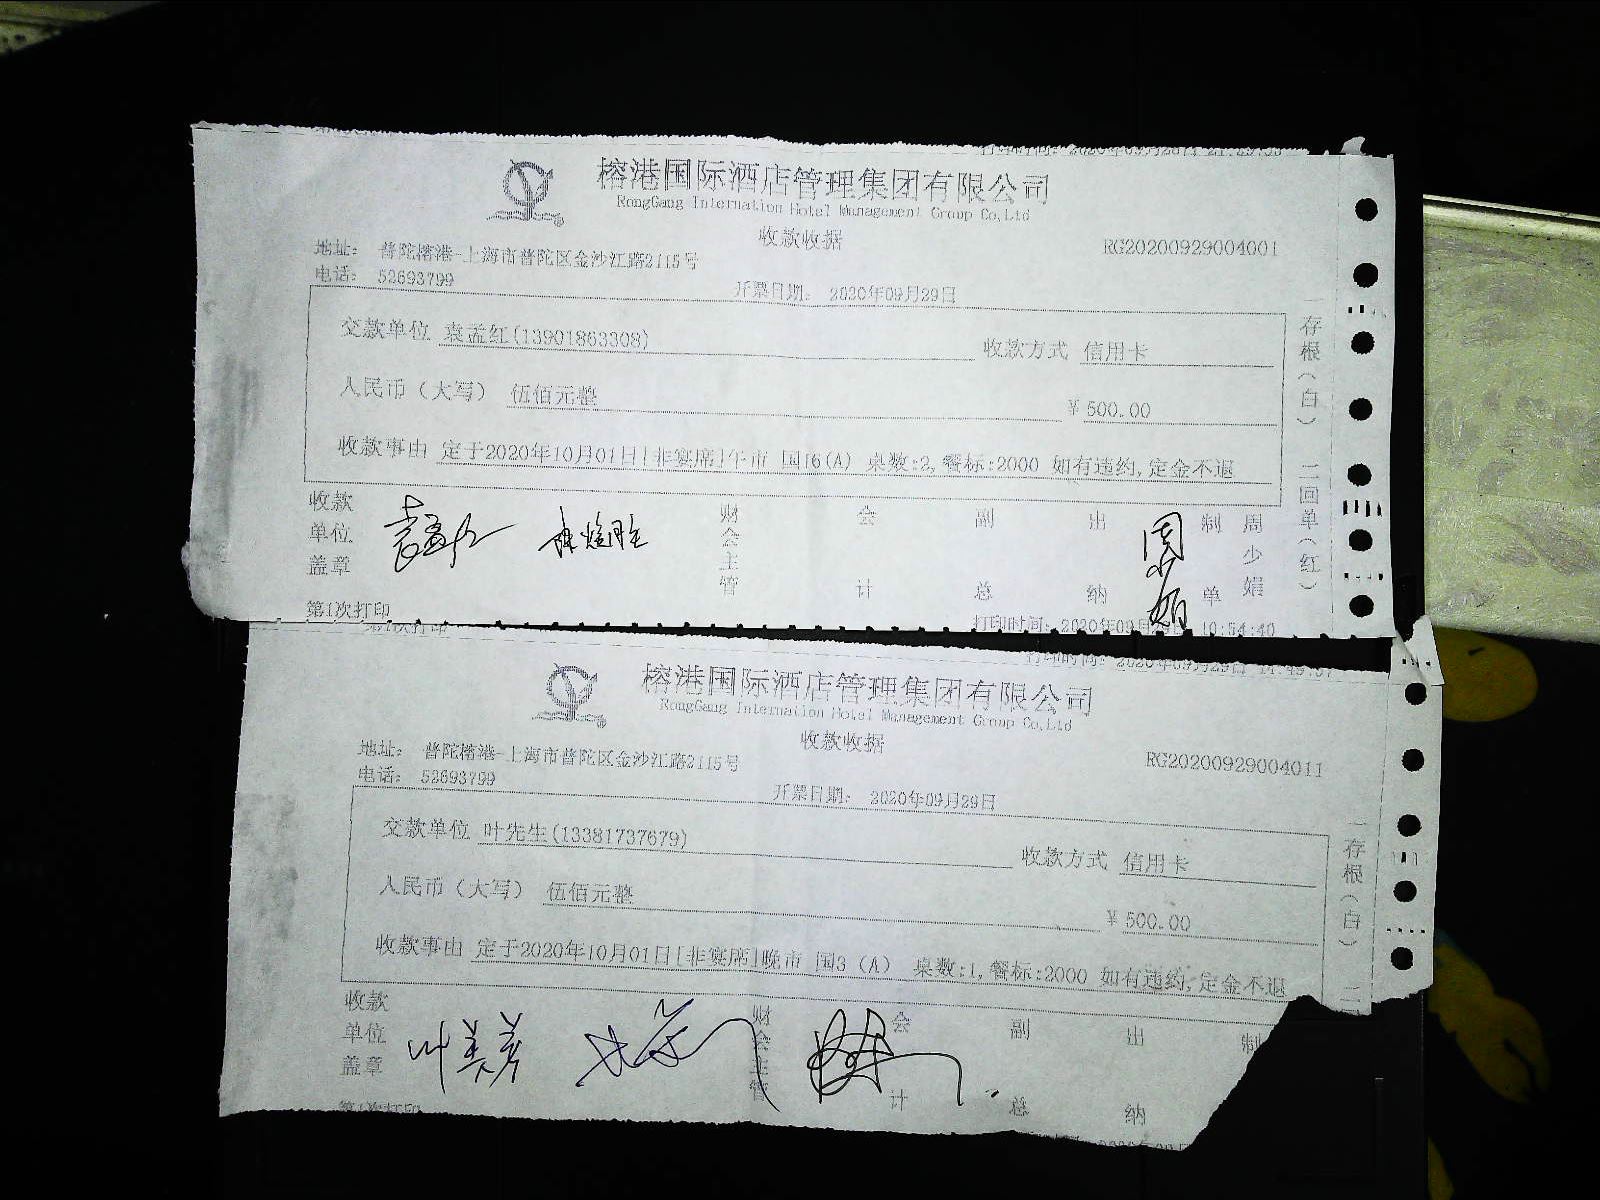 榕港国际酒店管理集团有限公司
RongGang Internation Hotel Management Group Co,Ltd
收款收据
RG20200929004001
地址： 普陀榕港-上海市普陀区金沙江路2115号
电话： 52693799
开票日期： 2020年09月29日
交款单位 袁孟红(13901863308) 收款方式 信用卡
人民币（大写） 伍佰元整 ￥500.00
收款事由 定于2020年10月01日[非宴席]午市 国16(A) 桌数:2,餐标:2000 如有违约,定金不退
收款单位盖章 财会主管 会计 副总 出纳 制单 周少娟
一存根（白） 二回单（红）
第1次打印
打印时间：2020年09月 10:54:40
第1次打印
打印时间：2020年09月29日
榕港国际酒店管理集团有限公司
RongGang Internation Hotel Management Group Co,Ltd
收款收据
RG20200929004011
地址： 普陀榕港-上海市普陀区金沙江路2115号
电话： 52693799
开票日期： 2020年09月29日
交款单位 叶先生(13381737679) 收款方式 信用卡
人民币（大写） 伍佰元整 ￥500.00
收款事由 定于2020年10月01日[非宴席]晚市 国3（A） 桌数:1,餐标:2000 如有违约,定金不退
收款单位盖章 叶美芳 财会主管 会计 副总 出纳 制
一存根（白） 二
第1次打印